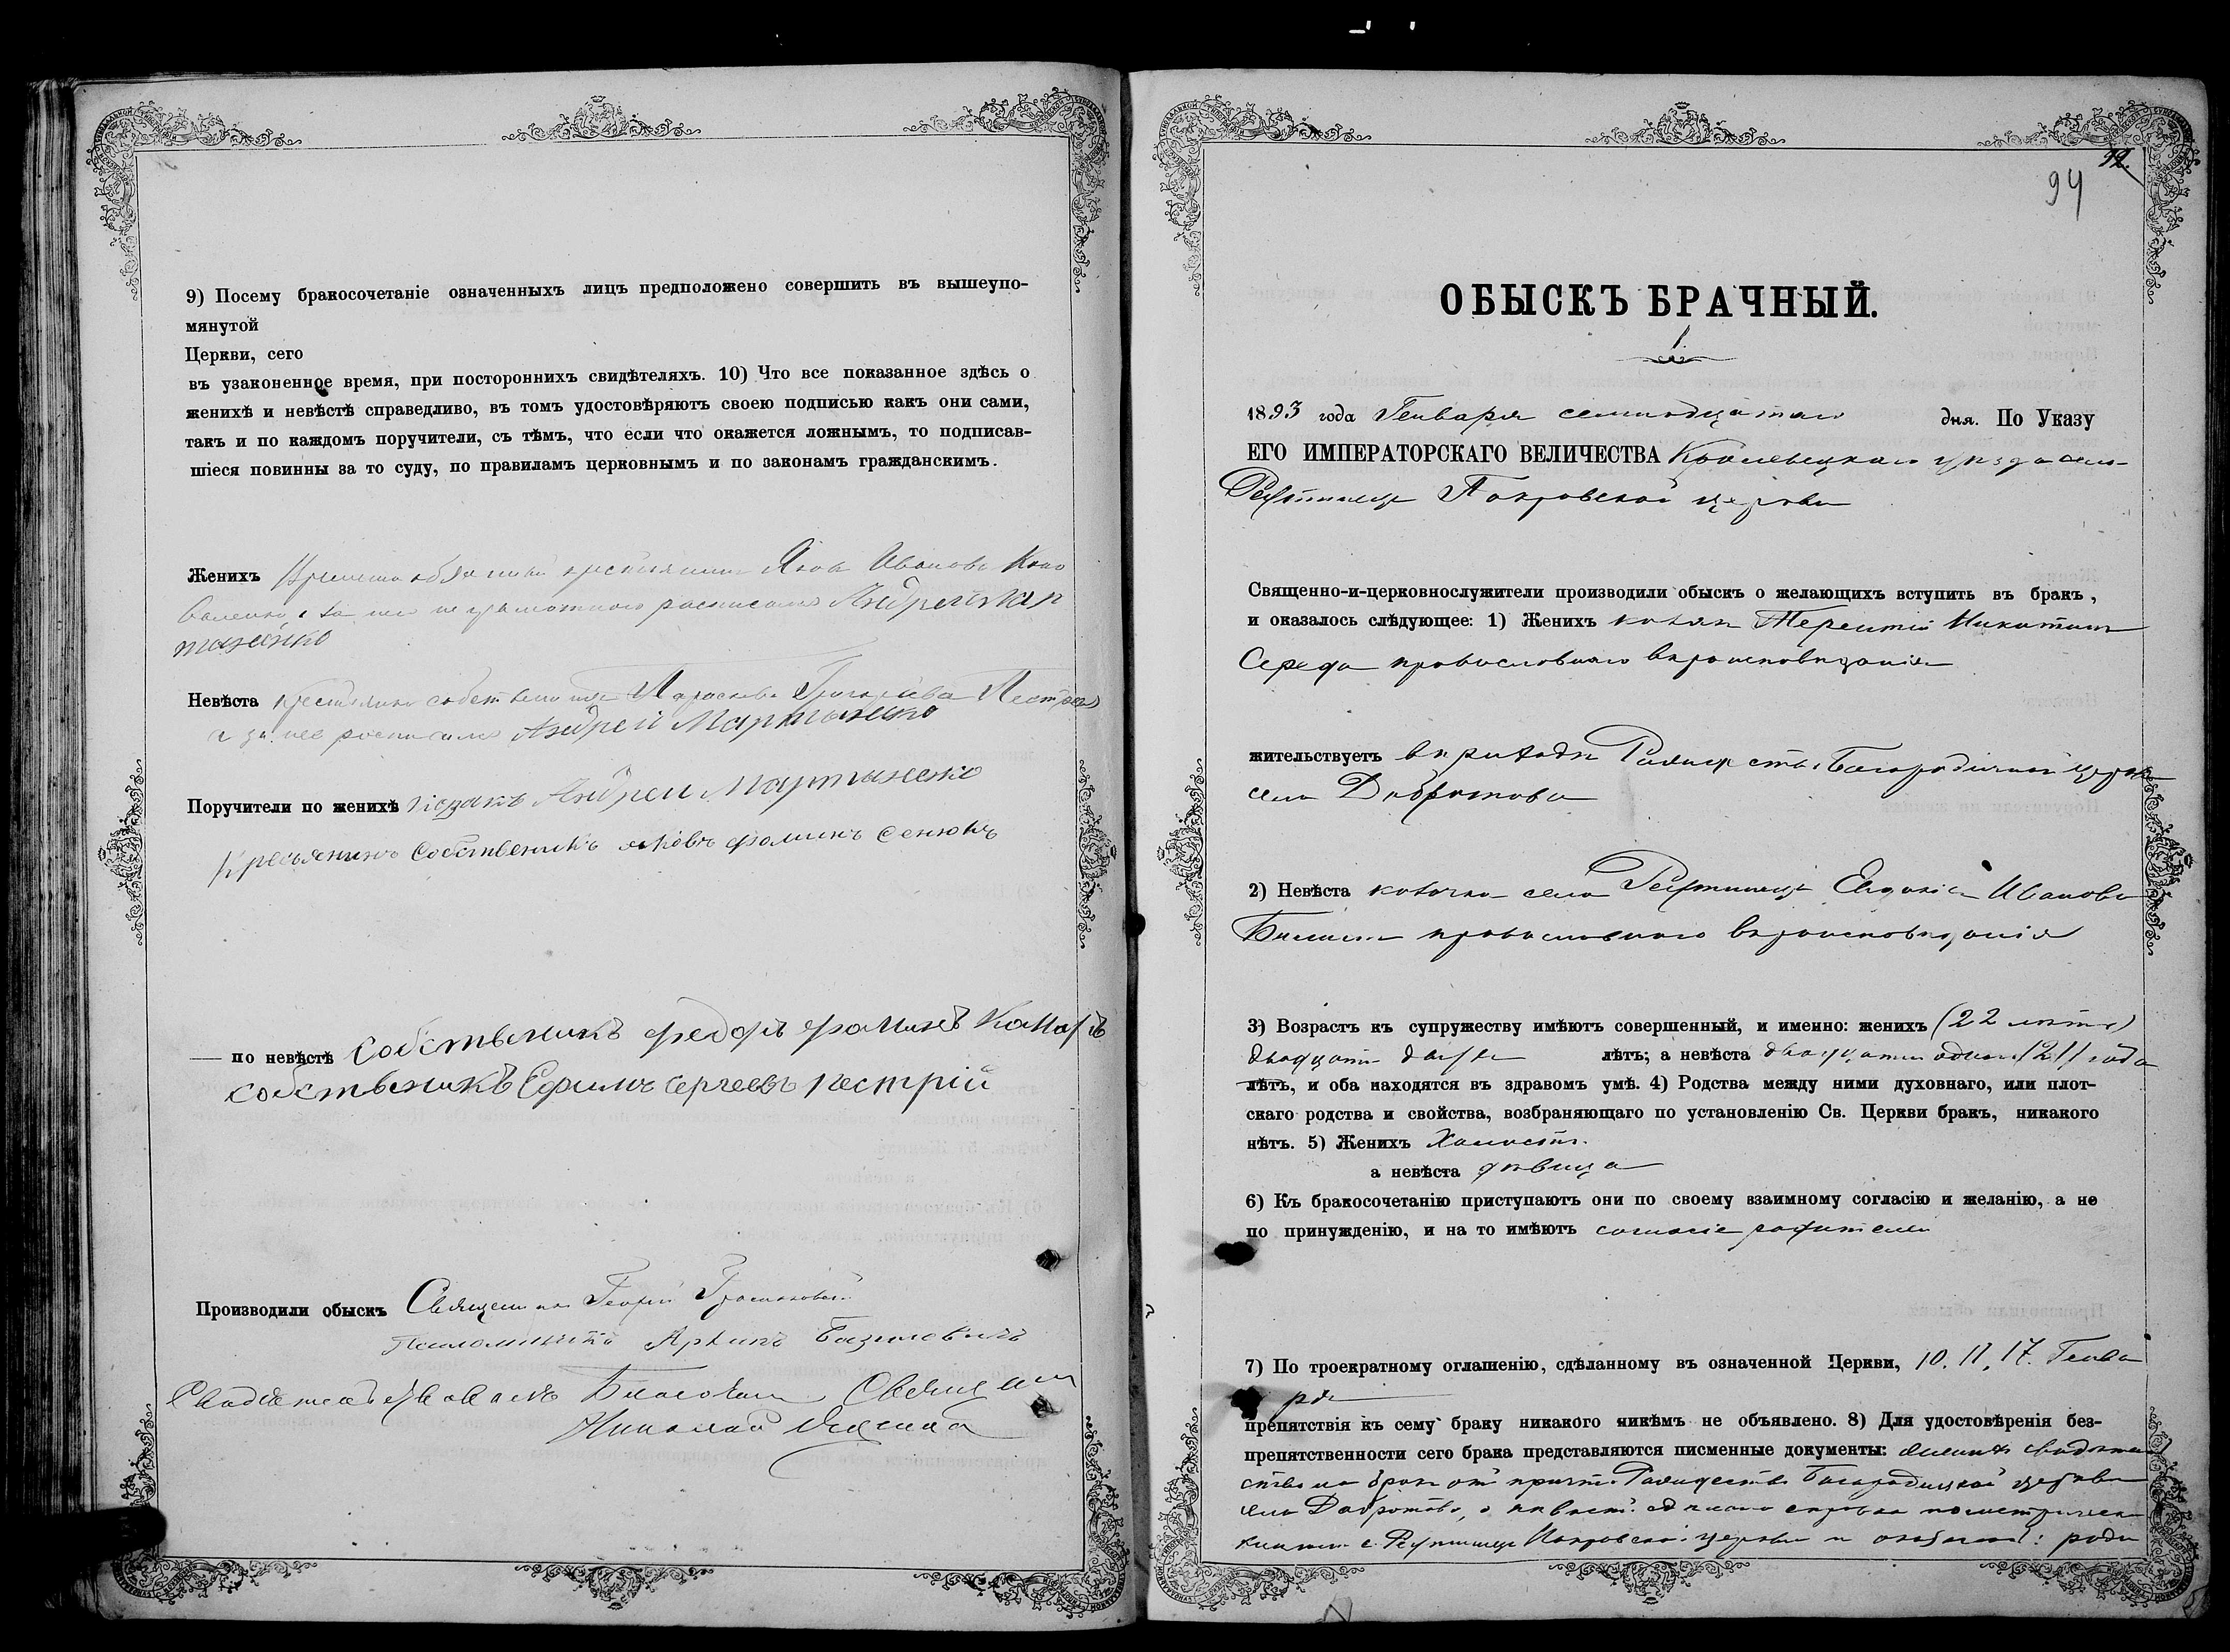 9) Посему бракосочетаніе означенныхъ лицъ предположено совершить въ вышеупо-
мянутой
Церкви, сего
въ узаконенное время, при постороннихъ свидѣтеляхъ. 10) Что все показанное здѣсь о
женихѣ и невѣстѣ справедливо, въ томъ удостовѣряютъ своею подписью какъ они сами,
такъ и по каждомъ поручители, съ тѣмъ, что если что окажется ложнымъ, то подписав-
шіеся повинны за то суду, по правиламъ церковнымъ и по законамъ гражданскимъ.
Женихъ Яковъ Ивановъ Коно
валенко, а за него неграмотного росписался Андрей Мар
тыненко
Невѣста Параскева Григорьева Пестрая
а за нее росписался Андрей Мартыненко
Поручители по женихѣ козакъ Андрей Мартыненко
Кресьянинъ собственикъ яковъ фоминъ сенюкъ
— по невѣстѣ собственикъ федоръ фоминъ
собственикъ Ефимъ сергеевъ пестрій
Производили обыскъ Священникъ Георгій
Псаломщикъ
Николай
32.
94
ОБЫСКЪ БРАЧНЫЙ.
1.
1893 года Генваря семнадцатаго дня. По Указу
ЕГО ИМПЕРАТОРСКАГО ВЕЛИЧЕСТВА Кролевецкаго уѣзда села
Реутинецъ Покровской церкви
Священно-и-церковнослужители производили обыскъ о желающихъ вступить въ бракъ,
и оказалось слѣдующее: 1) Женихъ козакъ Терентій Никитинъ
Середа православнаго вѣроисповѣданія
жительствуетъ въ приходѣ Рождество-Богородичной церкви
села Добротова
2) Невѣста козачка села Реутинецъ Евдокія Иванова
православнаго вѣроисповѣданія
3) Возрастъ къ супружеству имѣютъ совершенный, и именно: женихъ (22 лѣтъ)
двадцати двухъ лѣтъ; а невѣста двадцати одного (21) года
лѣтъ, и оба находятся въ здравомъ умѣ. 4) Родства между ними духовнаго, или плот-
скаго родства и свойства, возбраняющаго по установленію Св. Церкви бракъ, никакого
нѣтъ. 5) Женихъ холостъ.
а невѣста дѣвица
6) Къ бракосочетанію приступаютъ они по своему взаимному согласію и желанію, а не
по принужденію, и на то имѣютъ согласіе родителей
7) По троекратному оглашенію, сдѣланному въ означенной Церкви, 10. 11. 17. Генва
ря
препятствія къ сему браку никакого никѣмъ не объявлено. 8) Для удостовѣренія без-
препятственности сего брака представляются писменные документы: о женихѣ свидѣтель
ство на бракъ отъ причта Рождество Богородичной церкви
села Добротова, о невѣстѣ справка по метрическ.
книгамъ с. Реутинецъ Покровской церкви роди